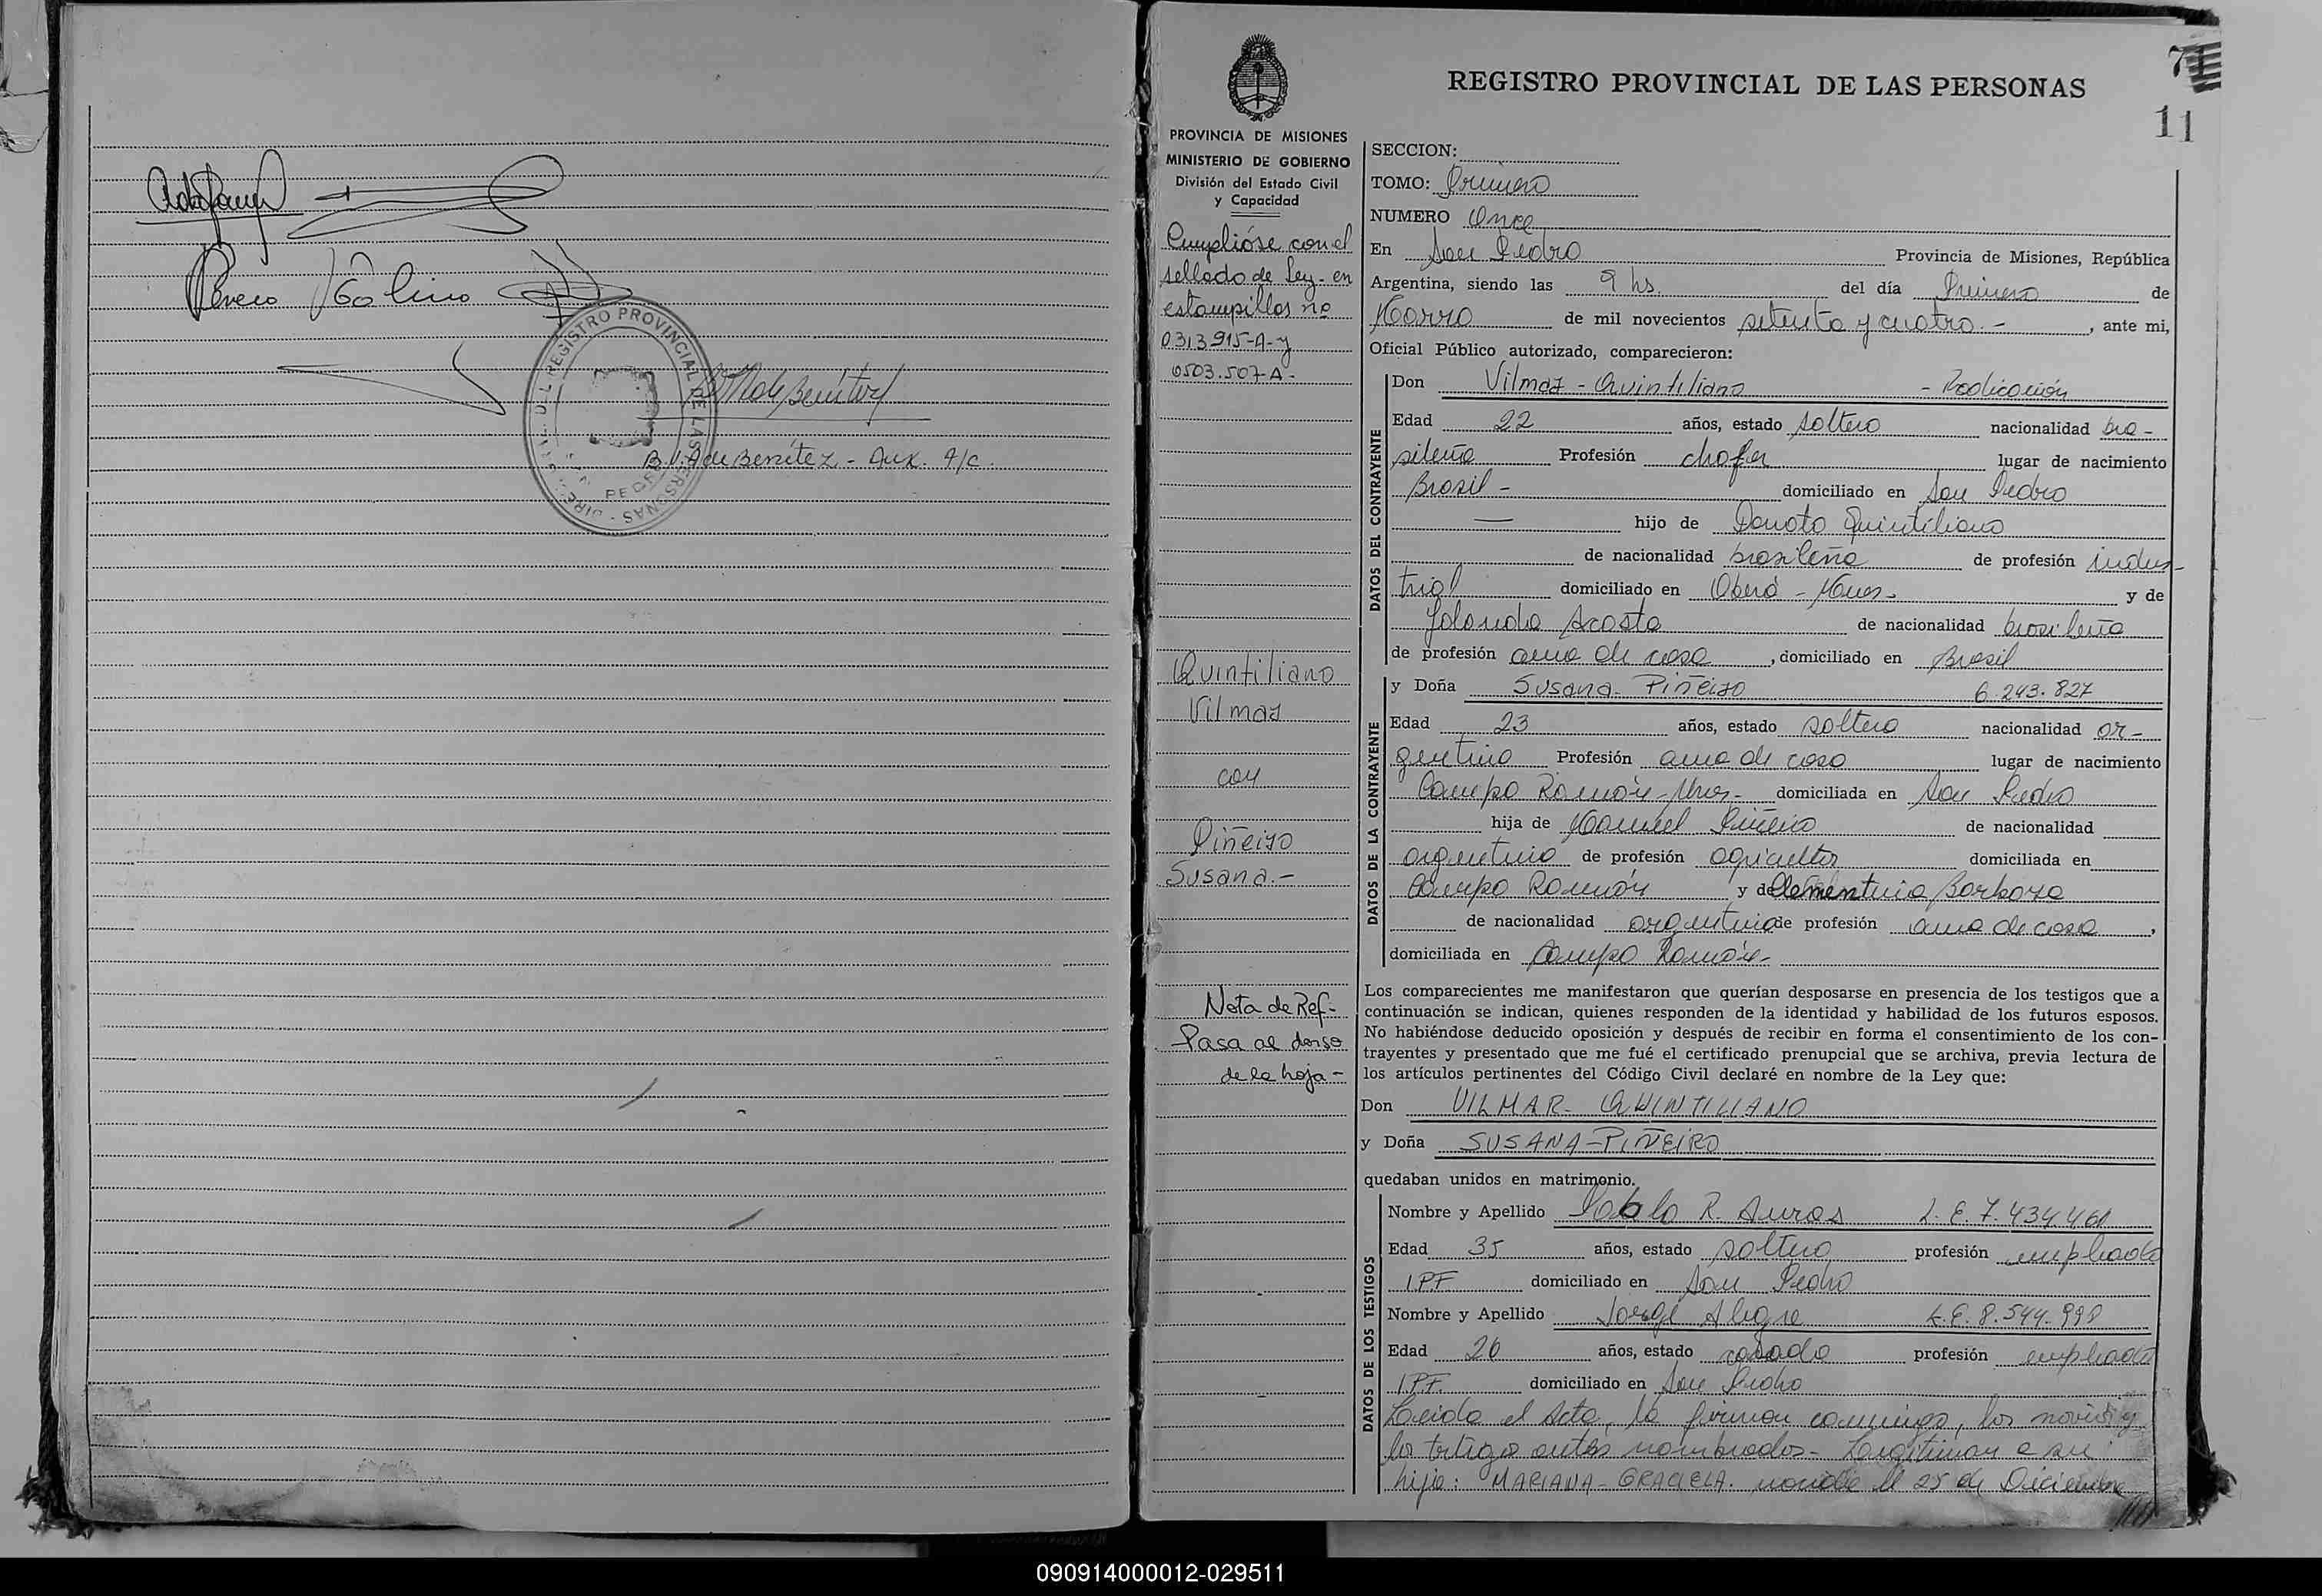 DIREC. DEL REGISTRO PROVINCIAL DE LAS PERSONAS
B. V. A de Benítez - Aux. a/c.
REGISTRO PROVINCIAL DE LAS PERSONAS
11
PROVINCIA DE MISIONES
MINISTERIO DE GOBIERNO
División del Estado Civil
y Capacidad
Cumplióse con el
sellado de Ley - en
estampillas nº
0313915-A- y
0503.507-A-
Quintiliano
Vilmar
con
Piñeiro
Susana.-
Nota de Ref-
Pasa al dorso
de la hoja-
SECCION:
TOMO: Primero
NUMERO Once
En San Pedro Provincia de Misiones, República
Argentina, siendo las 9 hs. del día Primero de
Marzo de mil novecientos setenta y cuatro.- , ante mi,
Oficial Público autorizado, comparecieron:
DATOS DEL CONTRAYENTE
Don Vilmar - Quintiliano - Radicación
Edad 22 años, estado soltero nacionalidad bra-
sileña Profesión chofer lugar de nacimiento
Brasil - domiciliado en San Pedro
— hijo de Donato Quintiliano
de nacionalidad brasileña de profesión indus-
trial domiciliado en Oberá - Mnes- y de
Jolanda Acosta de nacionalidad brasileña
de profesión ama de casa , domiciliado en Brasil
DATOS DE LA CONTRAYENTE
y Doña Susana - Piñeiro 6.243.827
Edad 23 años, estado soltera nacionalidad ar-
gentina Profesión ama de casa lugar de nacimiento
Campo Ramón-Mnes- domiciliada en San Pedro
hija de Manuel Piñeiro de nacionalidad
argentina de profesión agricultor domiciliada en
Campo Ramón y de Clementina Barboza
de nacionalidad argentina de profesión ama de casa ,
domiciliada en Campo Ramón-
Los comparecientes me manifestaron que querían desposarse en presencia de los testigos que a
continuación se indican, quienes responden de la identidad y habilidad de los futuros esposos.
No habiéndose deducido oposición y después de recibir en forma el consentimiento de los con-
trayentes y presentado que me fué el certificado prenupcial que se archiva, previa lectura de
los artículos pertinentes del Código Civil declaré en nombre de la Ley que:
Don VILMAR - QUINTILIANO
y Doña SUSANA - PIÑEIRO
quedaban unidos en matrimonio.
DATOS DE LOS TESTIGOS
Nombre y Apellido Pablo R. L. E. 7.434.461
Edad 35 años, estado soltero profesión empleado
I.P.F. domiciliado en San Pedro
Nombre y Apellido Jorge Alegre L.E. 8.544.998
Edad 26 años, estado casado profesión empleado
I.P.F. domiciliado en San Pedro
Leída el Acta, la firman conmigo, los novios y
los testigos antes nombrados- Legitiman a su
hija: MARIANA - GRACIELA. nacida el 25 de Diciembre
090914000012-029511